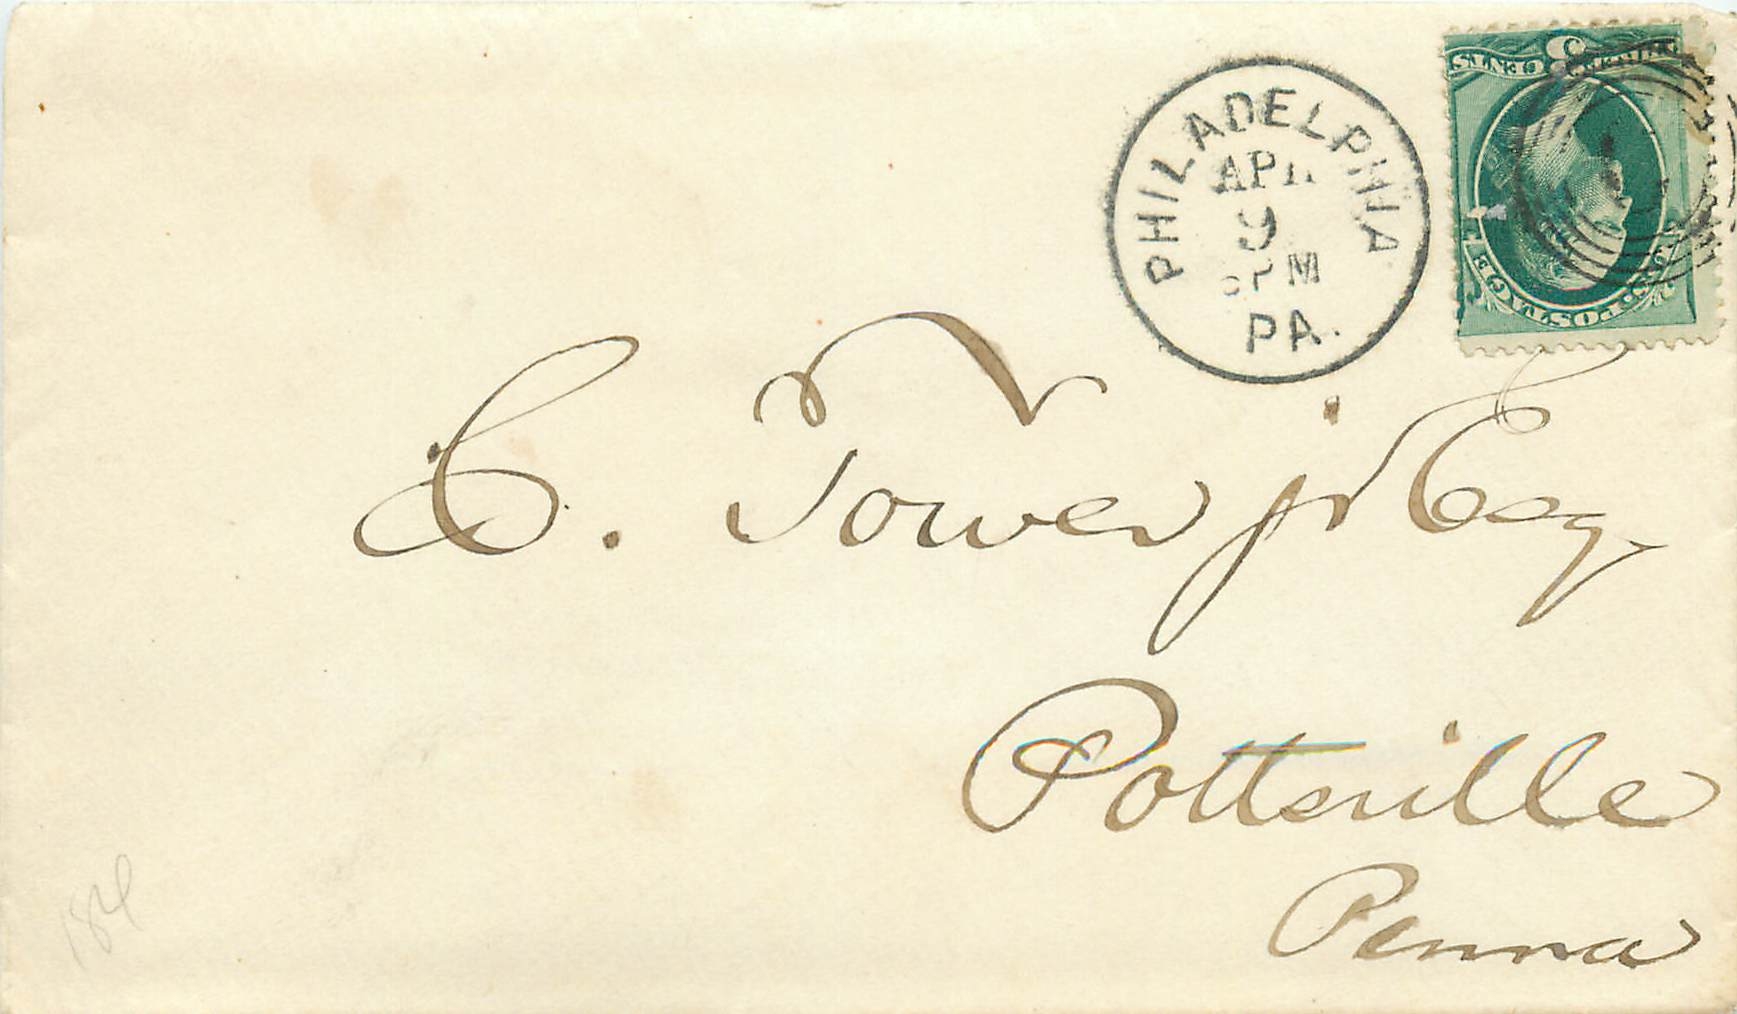 PHILADELPHIA
APR
9
PM
PA.
U.S. POSTAGE
3
CENTS
C. Tower jr Esq
Pottsville
Penna